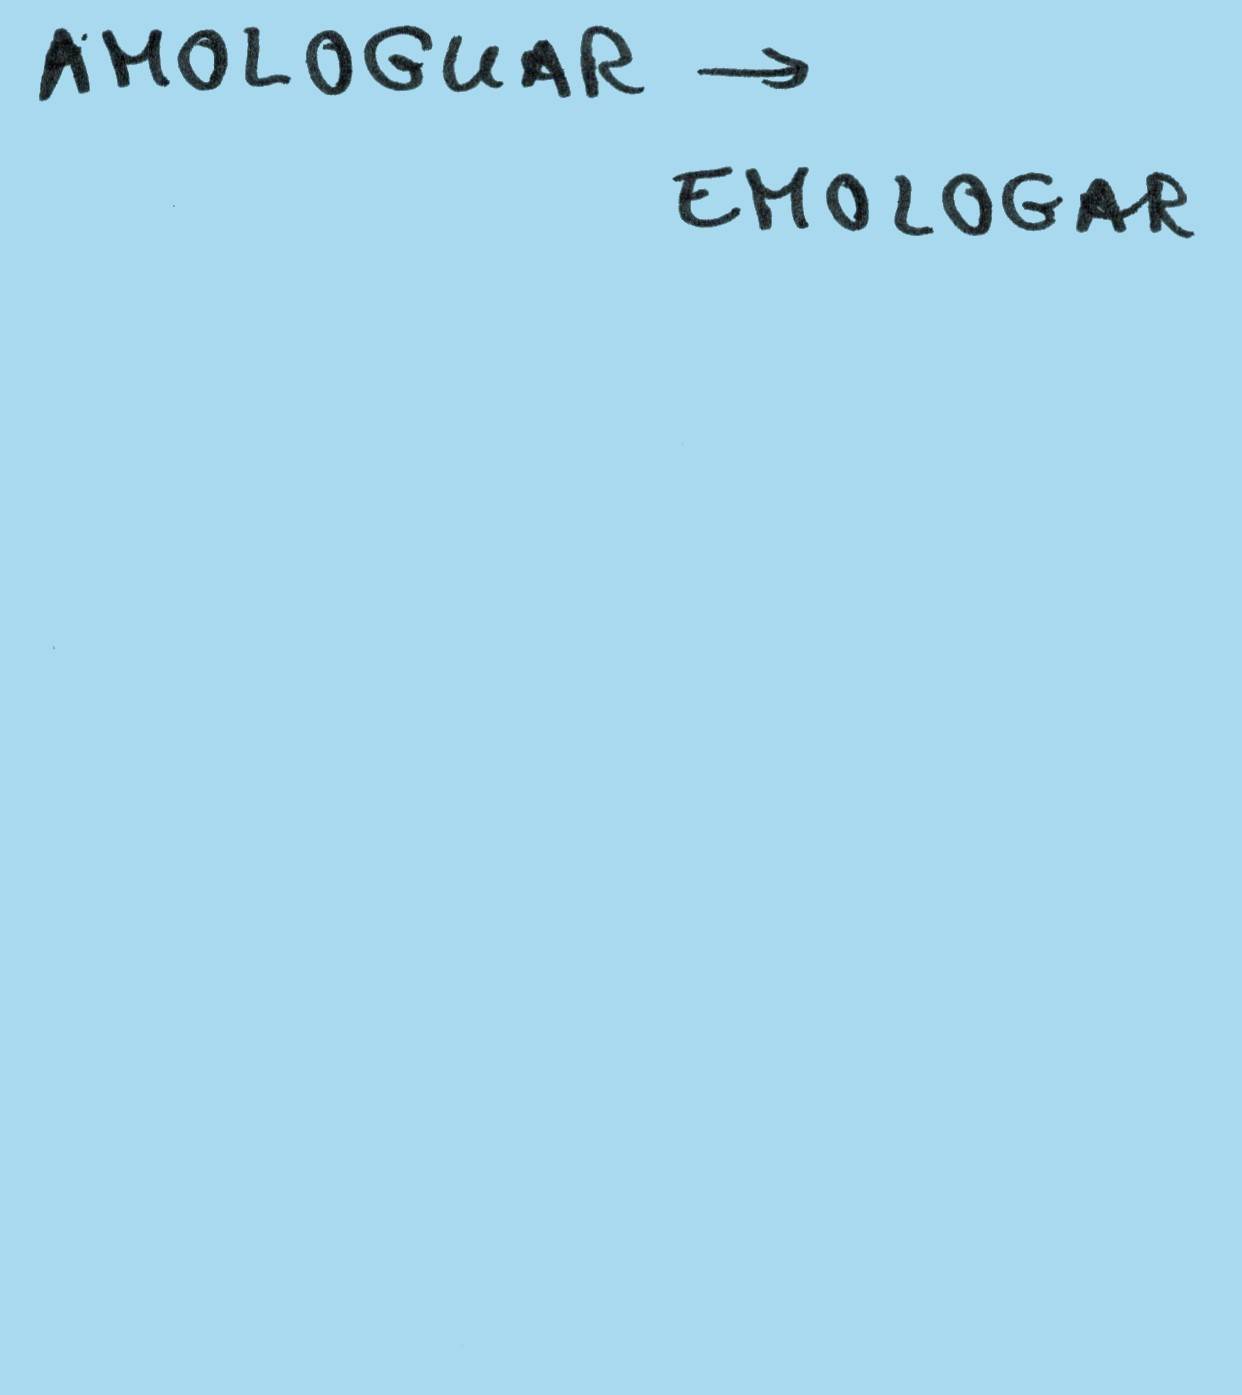 AMOLOGUAR →
EMOLOGAR